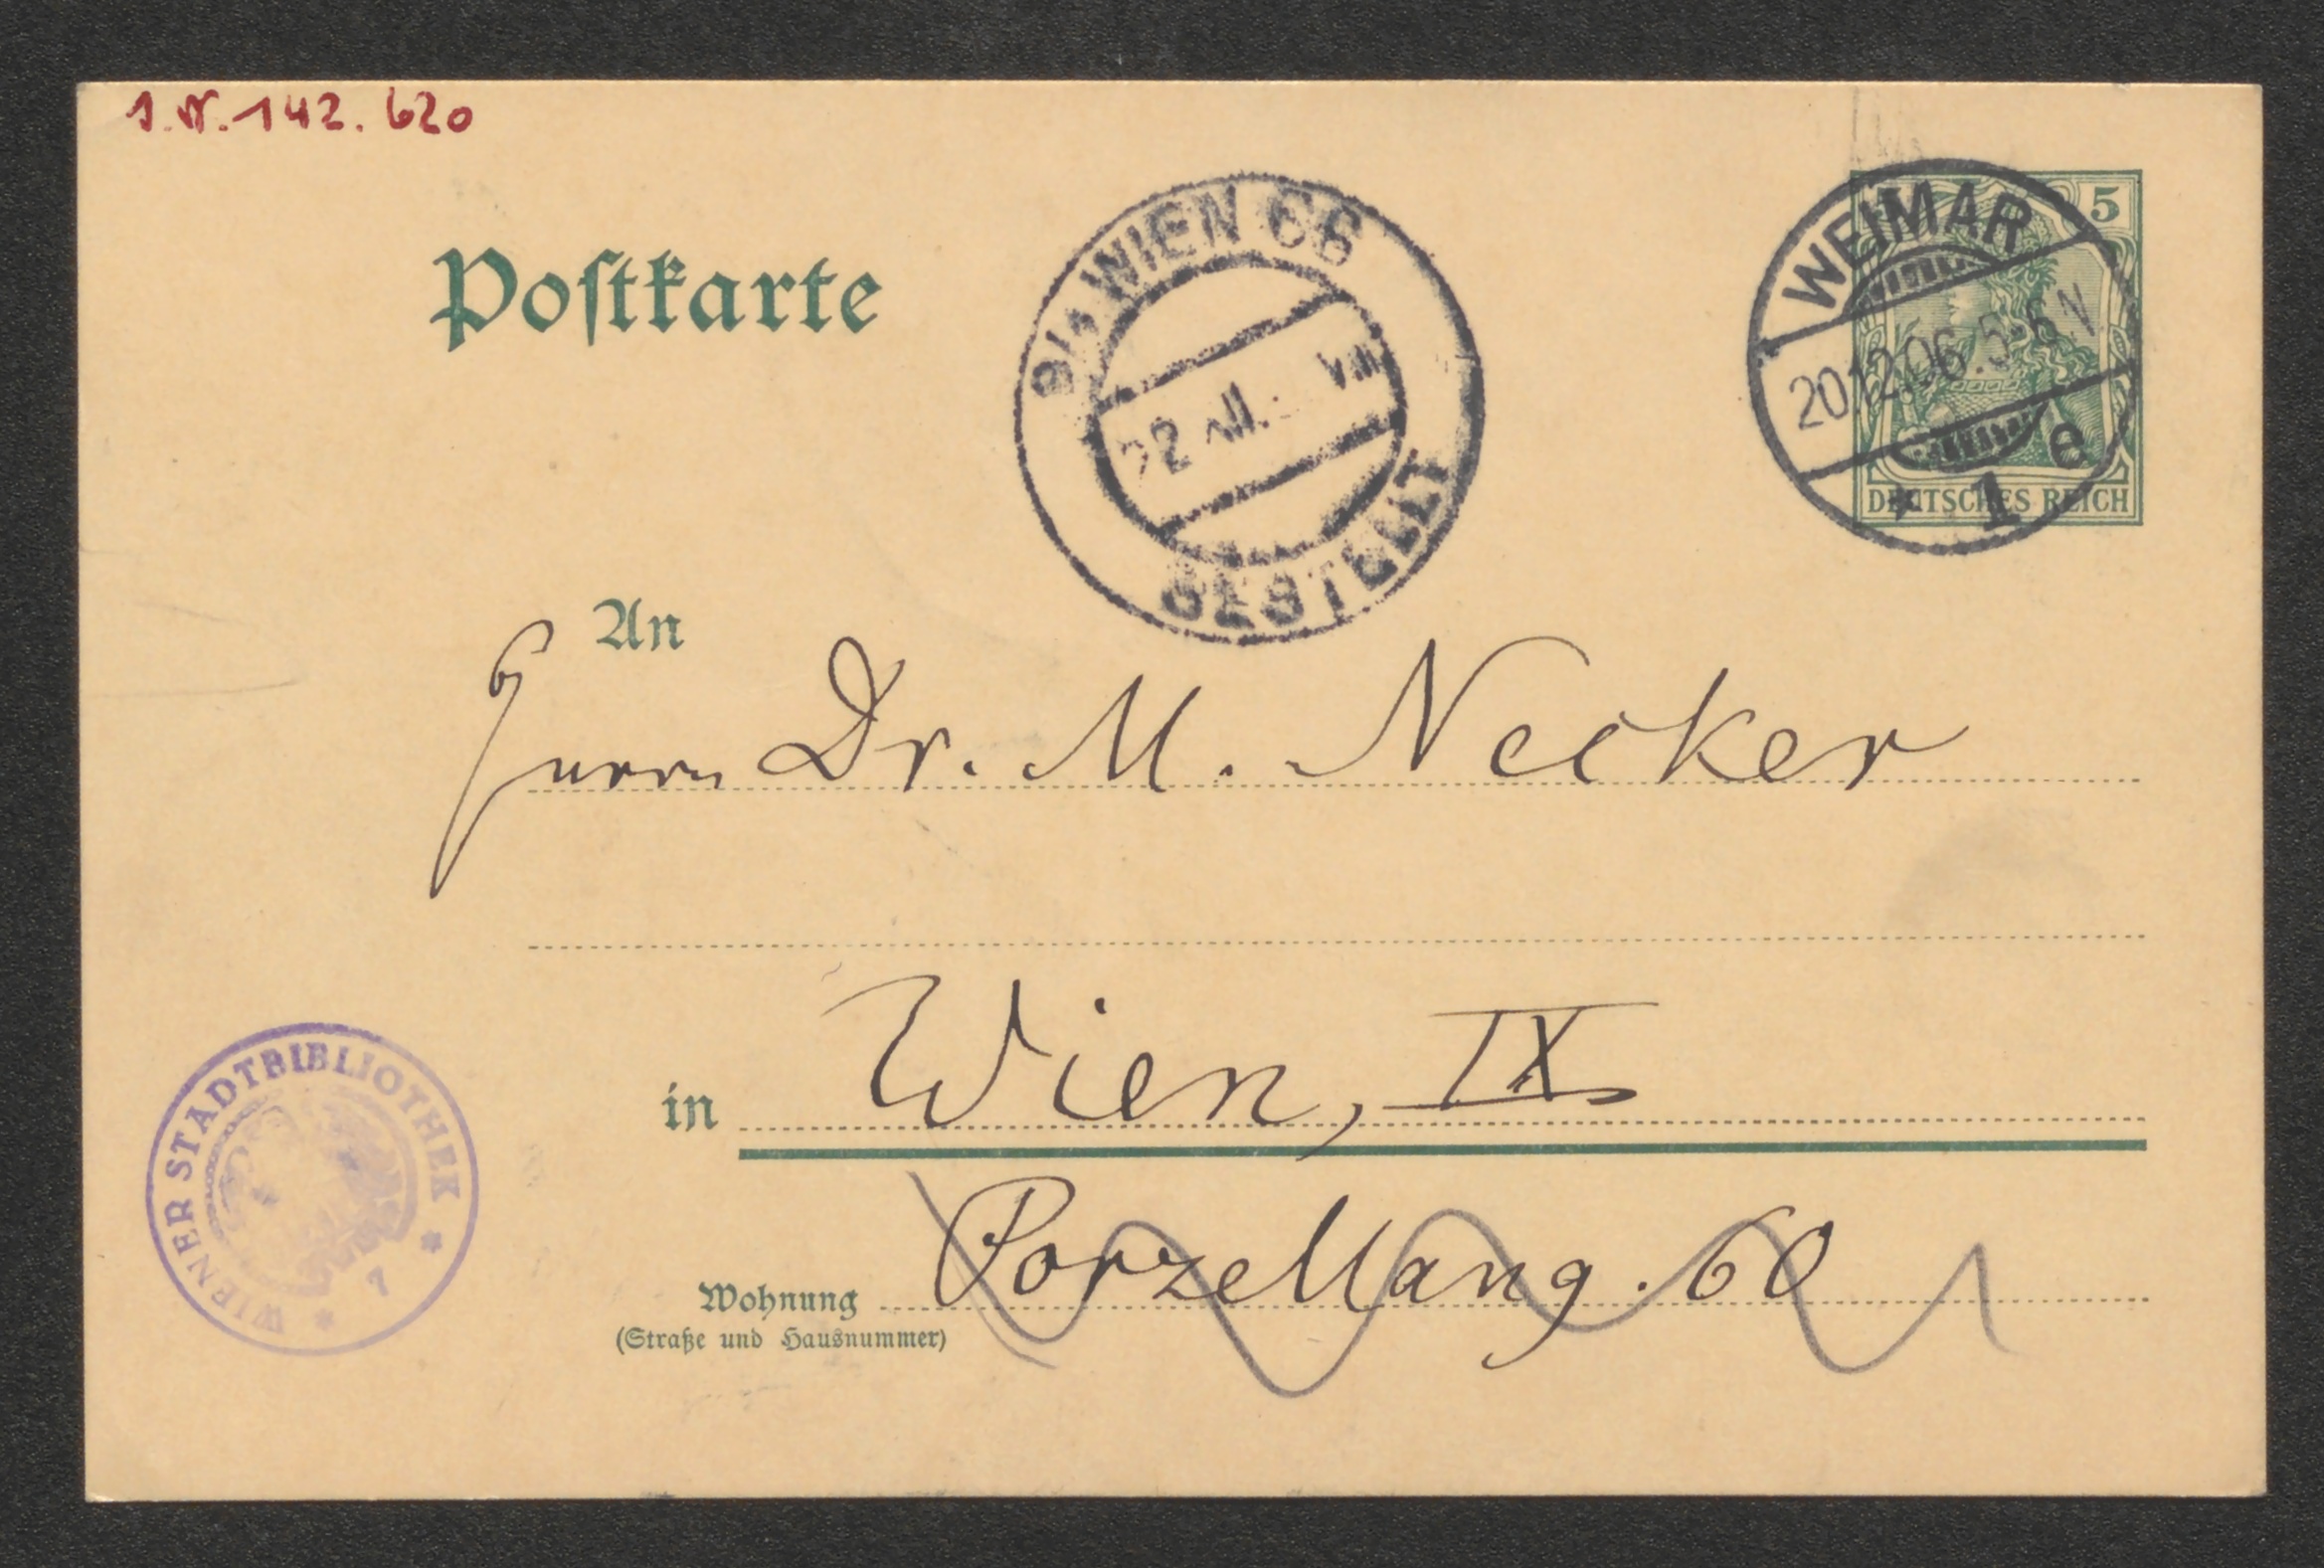 J.N. 142.620
Postkarte
9/4 WIEN 66
22. XII. VIII
BESTELLT
WEIMAR
20.12.06.5-6N
* 1 e
5
DEUTSCHES REICH
An
Herrn Dr. M. Necker
in Wien, IX
Wohnung Porzellang. 60
(Straße und Hausnummer)
WIENER STADTBIBLIOTHEK * 7 *